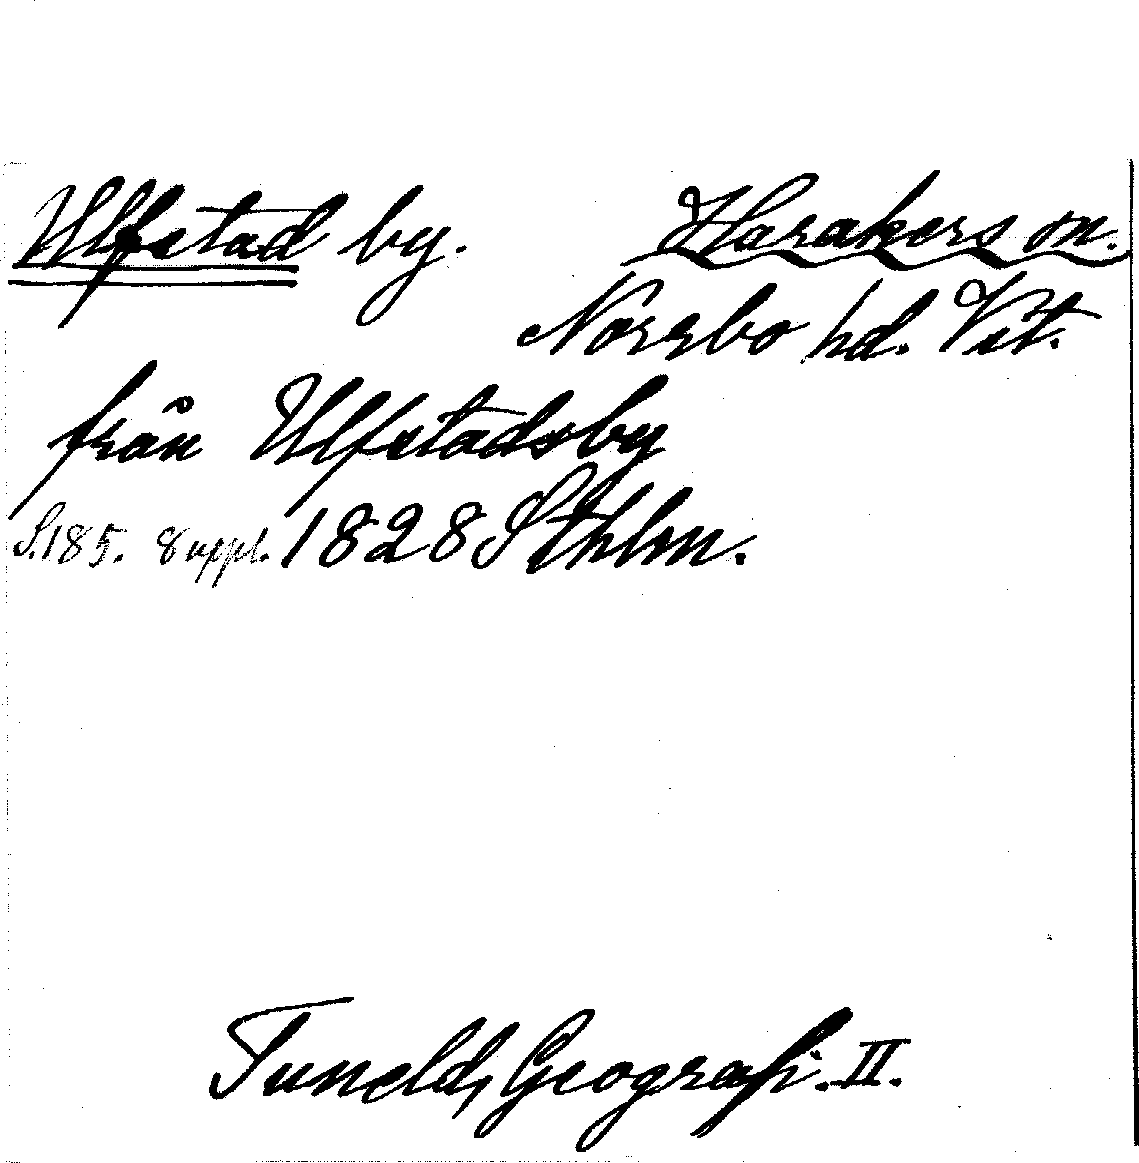 Ulfstad by. Harakers sn.
Norrbo hd. Vst.
från Ulfstadsby
S. 185. 8 uppl. 1828 Sthlm.
Tuneld, Geografi. II.